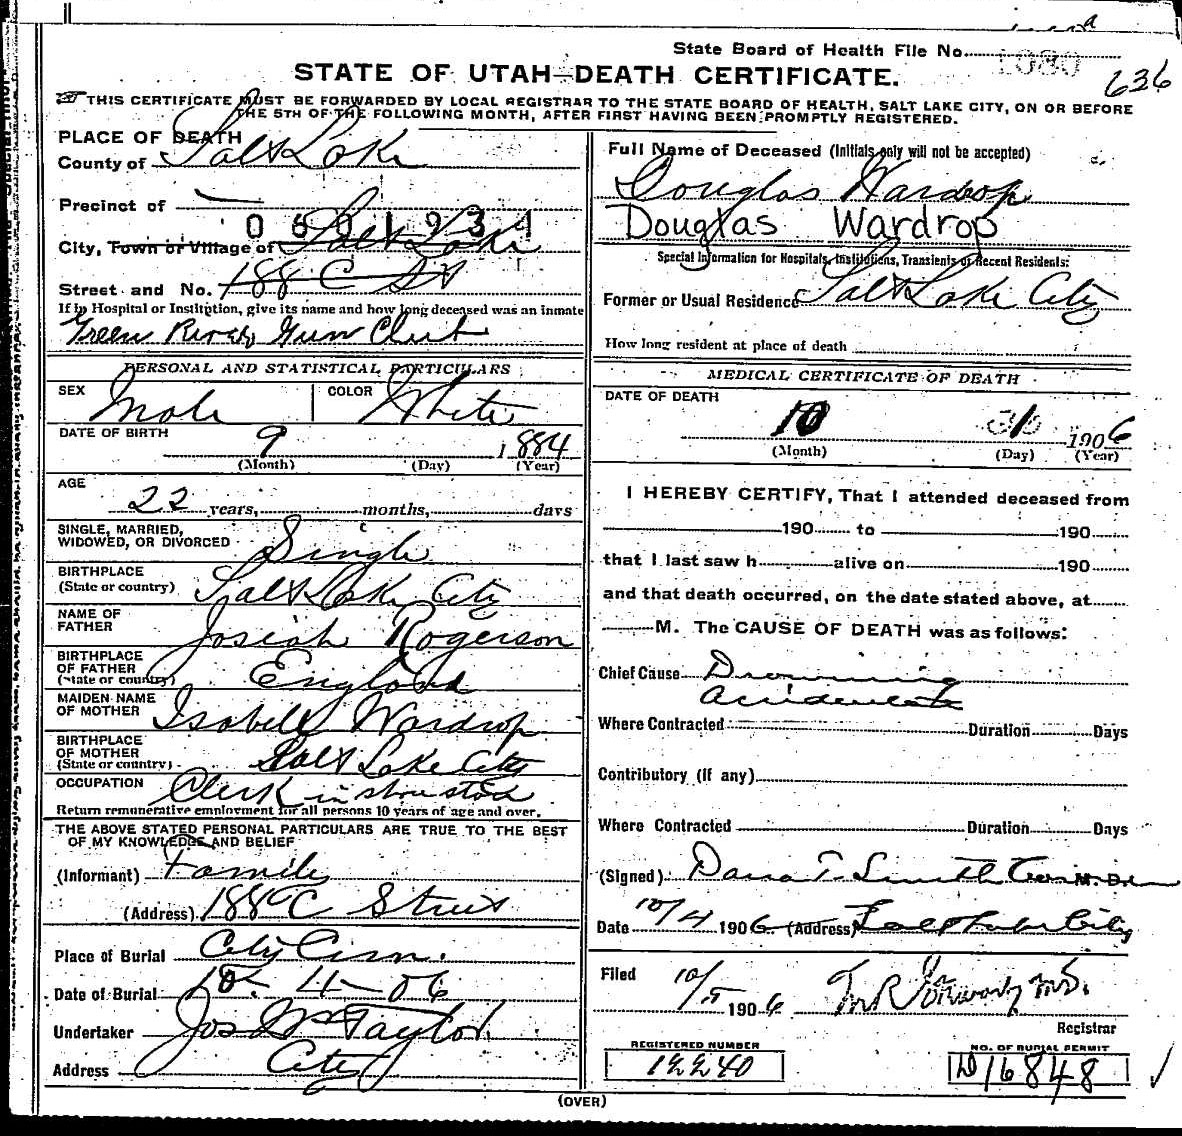 State Board of Health File No. 1080
636
STATE OF UTAH—DEATH CERTIFICATE.
THIS CERTIFICATE MUST BE FORWARDED BY LOCAL REGISTRAR TO THE STATE BOARD OF HEALTH, SALT LAKE CITY, ON OR BEFORE
THE 5TH OF THE FOLLOWING MONTH, AFTER FIRST HAVING BEEN PROMPTLY REGISTERED.
PLACE OF DEATH
County of Salt Lake
Precinct of
0601931
City, Town or Village of Salt Lake
Street and No. 188 C St
If in Hospital or Institution, give its name and how long deceased was an inmate
Green River Gun Club
PERSONAL AND STATISTICAL PARTICULARS
SEX Male COLOR White
DATE OF BIRTH 9 1884
(Month) (Day) (Year)
AGE
22 years, months, days
SINGLE, MARRIED,
WIDOWED, OR DIVORCED Single
BIRTHPLACE
(State or country) Salt Lake City
NAME OF
FATHER Josiah Rogerson
BIRTHPLACE
OF FATHER
(State or country) England
MAIDEN NAME
OF MOTHER Isabell Wardrop
BIRTHPLACE
OF MOTHER
(State or country) Salt Lake City
OCCUPATION Clerk in shoe store
Return remunerative employment for all persons 10 years of age and over.
THE ABOVE STATED PERSONAL PARTICULARS ARE TRUE TO THE BEST
OF MY KNOWLEDGE AND BELIEF
(Informant) Family
(Address) 188 C Street
Place of Burial City Cem.
Date of Burial 10-4-06
Undertaker Jos Wm Taylor
Address City
Full Name of Deceased (Initials only will not be accepted)
Douglas Wardrop
Douglas Wardrop
Special Information for Hospitals, Institutions, Transients or Recent Residents:
Former or Usual Residence Salt Lake City
How long resident at place of death
MEDICAL CERTIFICATE OF DEATH
DATE OF DEATH
10 1906
(Month) (Day) (Year)
I HEREBY CERTIFY, That I attended deceased from
190 to 190
that I last saw h alive on 190
and that death occurred, on the date stated above, at
M. The CAUSE OF DEATH was as follows:
Chief Cause Drowning
Accidental
Where Contracted Duration Days
Contributory (If any)
Where Contracted Duration Days
(Signed) Dana T. Smith M. D.
Date 10/4 1906 (Address) Salt Lake City
Filed
10/5 1906 M.D.
Registrar
REGISTERED NUMBER
12240
NO. OF BURIAL PERMIT
D16848
(OVER)